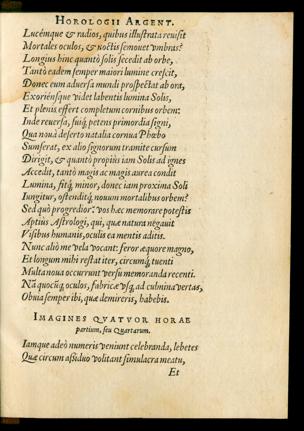 HOROLOGII ARGENT.
Lucémque & radios, quibus illustrata reuisit
Mortales oculos, & noctis semouet vmbras?
Longius hinc quantò solis secedit ab orbe,
Tantò eadem semper maiori lumine crescit,
Donec eum aduersa mundi prospectat ab ora,
Exoriénsque videt labentis lumina Solis,
Et plenis effert completum cornibus orbem:
Inde reuersa, suiq́; petens primordia signi,
Qua nouâ deserto natalia cornua Phœbo
Sumserat, ex alio signorum tramite cursum
Dirigit, & quantò propius iam Solis ad ignes
Accedit, tantò magis ac magis aurea condit
Lumina, fitq́; minor, donec iam proxima Soli
Iungitur, ostenditq́; nouum mortalibus orbem?
Sed quò progredior? vos hæc memorare potestis
Aptius Astrologi, qui, quæ natura negauit
Visibus humanis, oculis ea mentis aditis.
Nunc alió me vela vocant: feror æquore magno,
Et longum mihi restat iter, circumq́; tuenti
Multa noua occurrunt versu memoranda recenti.
Nã quocũq; oculos, fabricæ vsq; ad culmina vertas,
Obuia semper ibi, quæ demireris, habebis.
IMAGINES QVATVOR HORAE
partium, seu Quartarum.
Iamque adeò numeris veniunt celebranda, lebetes
Quæ circum assiduo volitant simulacra meatu,
Et